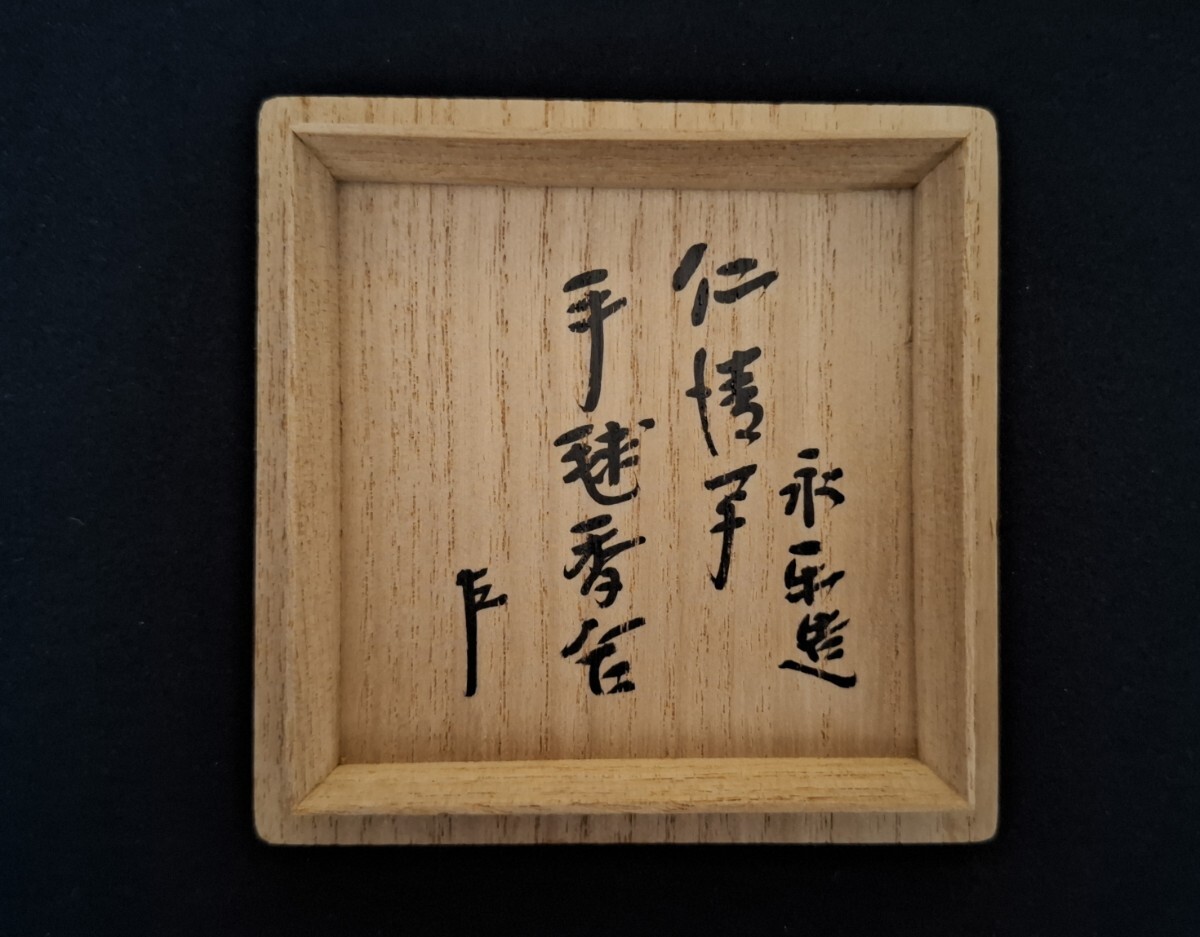 永楽造
仁清写
手毬香合
左